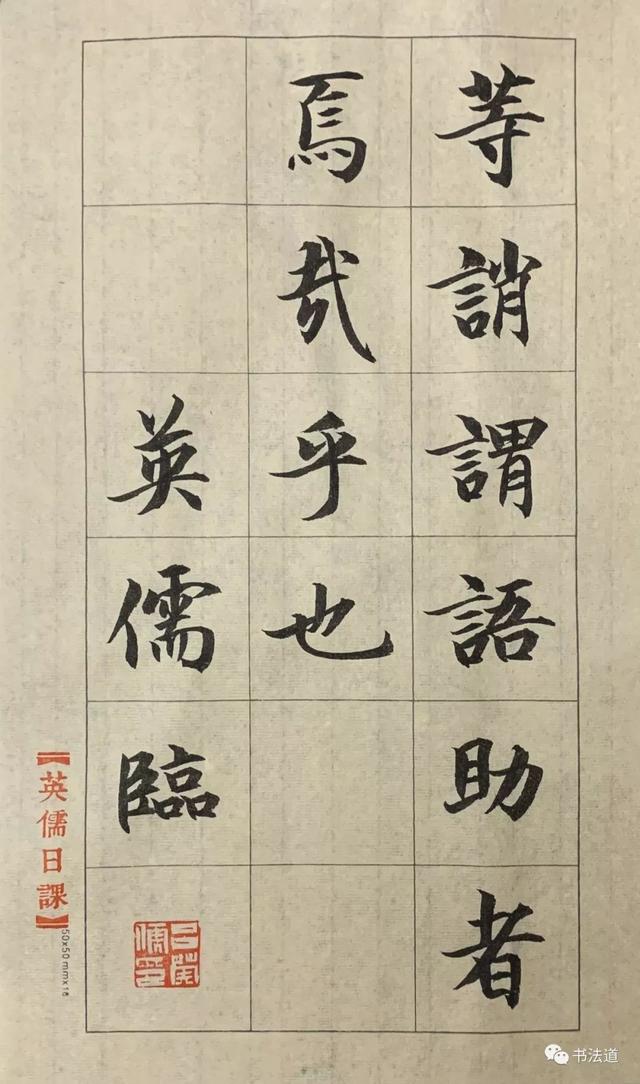 等誚謂語助者
焉哉乎也
英儒臨
【英儒日課】
50x50mmx18
书法道